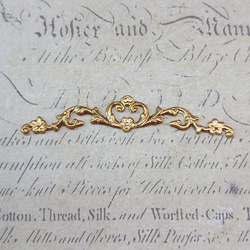 Hosier and Manu
At the Bishop Blaze Ch
Makes and Sells
umption all Sorts of Silk Cotton,
me-knit Pieces for Waistcoats
Cotton, Thread, Silk, and Worsted-Caps, T
Silk Mitts and Gloves, Silk Purses